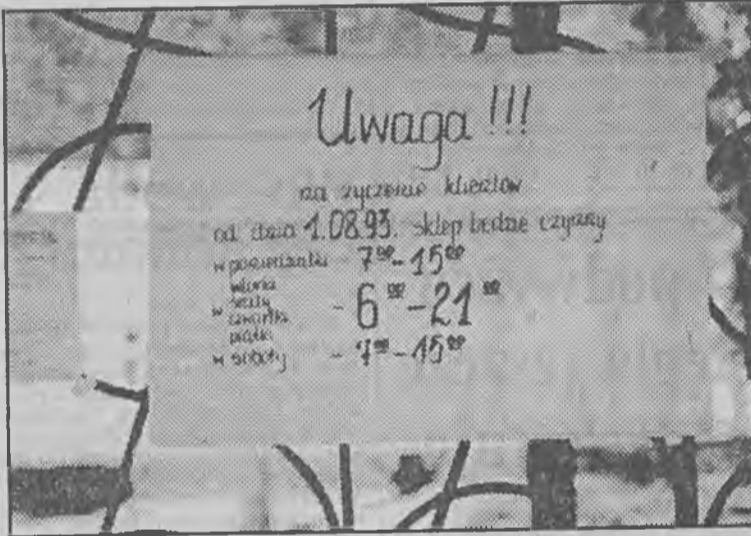 Uwaga !!!
na życzenie klientów
od dnia 1.08.93. sklep będzie czynny
w poniedziałki - 7⁰⁰-15⁰⁰
wtorki
w środy
czwartki - 6⁰⁰-21⁰⁰
piątki
w soboty - 7⁰⁰-15⁰⁰